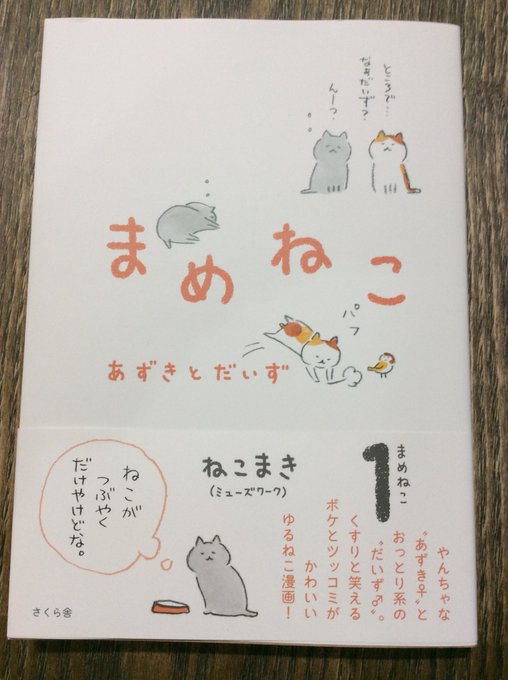 ところで…
なぁだいず?
んーっ?
まめねこ
パフ
あずきとだいず
まめねこ
1
ねこまき
(ミューズワーク)
やんちゃな
“あずき♀”と
おっとり系の
“だいず♂”。
くすりと笑える
ボケとツッコミが
かわいい
ゆるねこ漫画!
ねこが
つぶやく
だけやけどな。
さくら舎